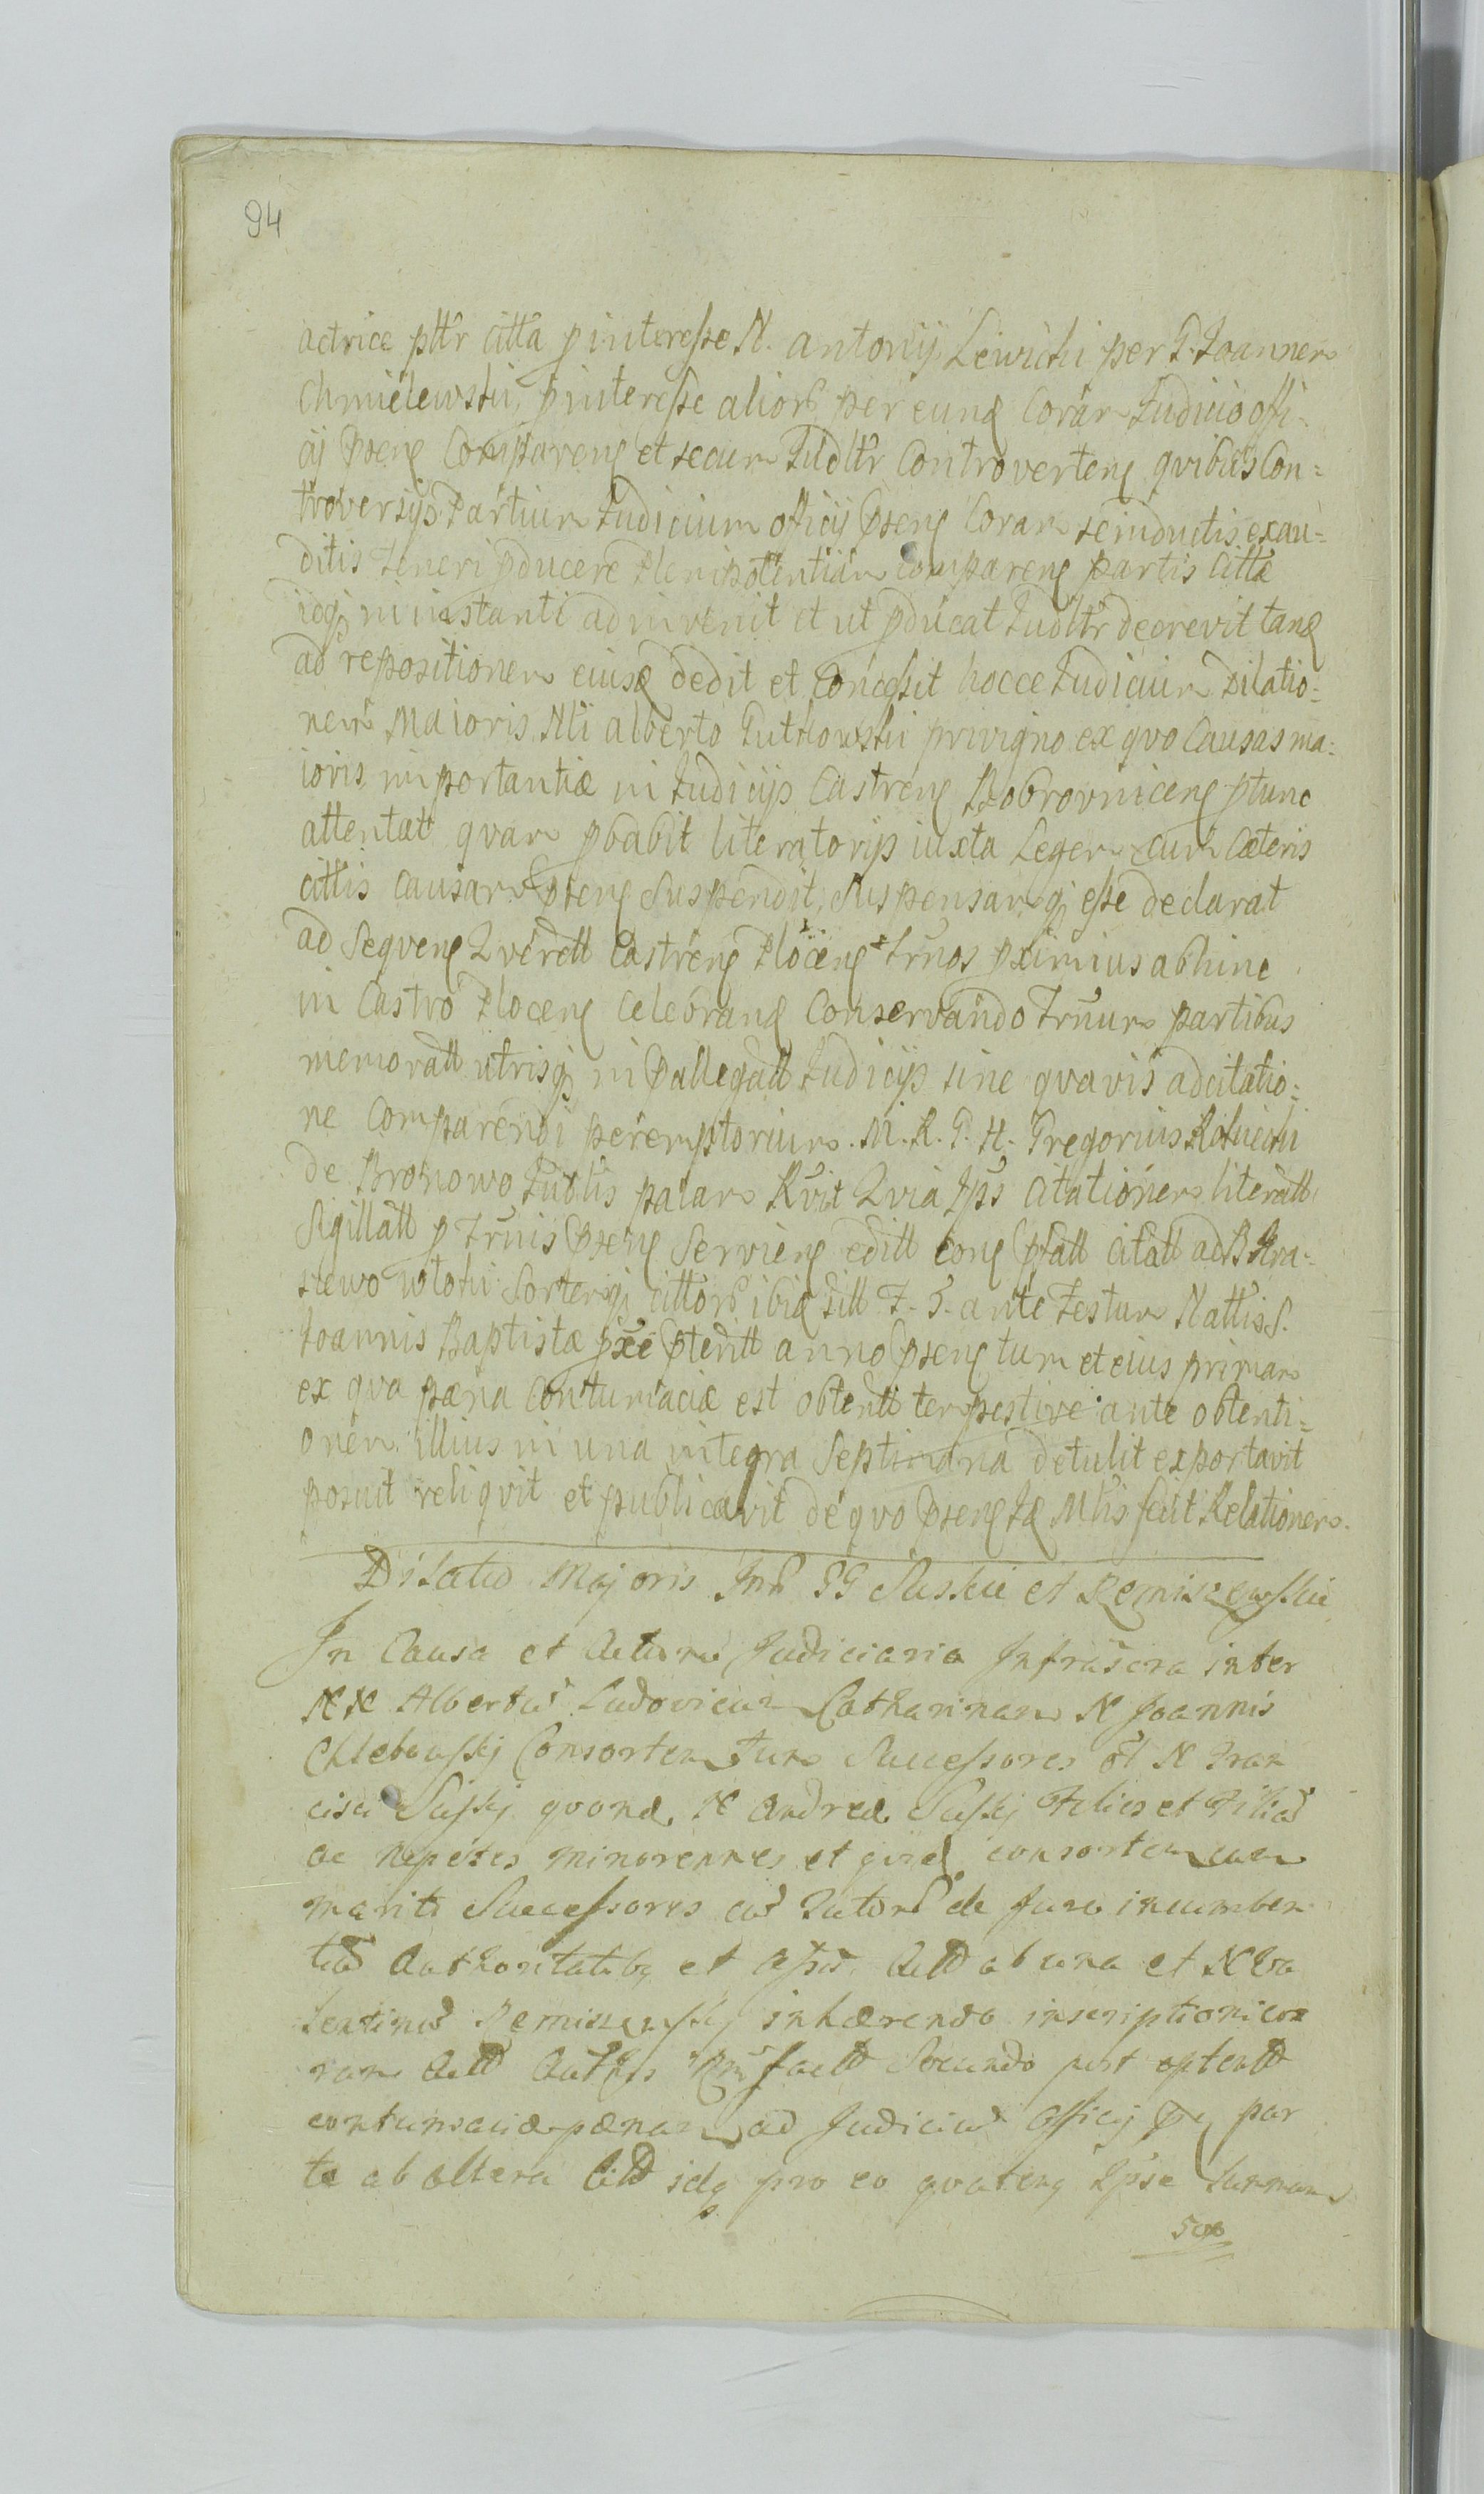 94
actrice pttr citta p interesse N. antonij Lewicki per G. Joannem
Chmielewski, p interesse alior per eund Coram Judicio offi-
cij Psens Comparens et secum Judltr Controvertens qvibus Con=
troversijs Partium Judicium officij Psens Coram se inductis exau=
ditis teneri pducere Plenipotentiam comparens partis Citta
idq in instanti adinvenit et ut pducat Judltr decrevit tand
ad repositionem eiusd dedit et Concessit hocce Judicium Dilatio=
nem Maioris Nli alberto Gutkowski privigno ex qvo Causas ma=
ioris importantiæ in Judicijs Castrens Bobrovnicens ptunc
attentat qvam pbabit literatorijs iuxta Legem cum Cæteris
cittis causam Psens Suspendit, Suspensamq esse declarat
ad Seqvens Qverell Castrens Plocens trnos pximius abhinc
in Castro Plocens Celebrand Conservando trnum partibus
memoratt utrisq in Pallegatt Judicijs sine qvavis adcitatio=
ne Comparendi peremptorium. M. R. G. H. Gregorius
de Bronowo Judlis palam Rvit Qvia Jps Citationem literatt
Sigillatt p trnis Psens Serviens editt cone Pfatt citatt ad B
Sortemq cittor ibid sitt F. 5. ante Festum Nattis S.
Joannis Baptistæ pxe Pteritt anno Psens tum et eius primam
ex qva pæna Contumaciæ est obtentt tempestive ante obtenti=
onem illius in una integra Septimana detulit exportavit
posuit reliqvit et publicavit de qvo Psens Jd Mlis fecit Relationem.
Dilatio Majoris Intr GG Suskie et Remiszewskie
In Causa et Actione Judiciaria Infrascra inter
NN Albertum Ludovicum Catharinam N Joannis
Chlebowskj Consortem tum Successores ol N Fran
cisci Suskj qvond N Andreæ Suskj Filios et Filias
ac Nepotes minorennes et qvid consortem cum
marito Successores cum Tutor de Jure incumben
tium Authoritatibq et Assis Actt ab una et N Va
lentinum Remiszewskj inhærendo inscriptioni co
ram Actt Authis facto Secundo post optentt
contumaciæ pænam ad Judicium Officij Ps par
te ab altera Citt idq pro eo qvatenq Ipse summam
500